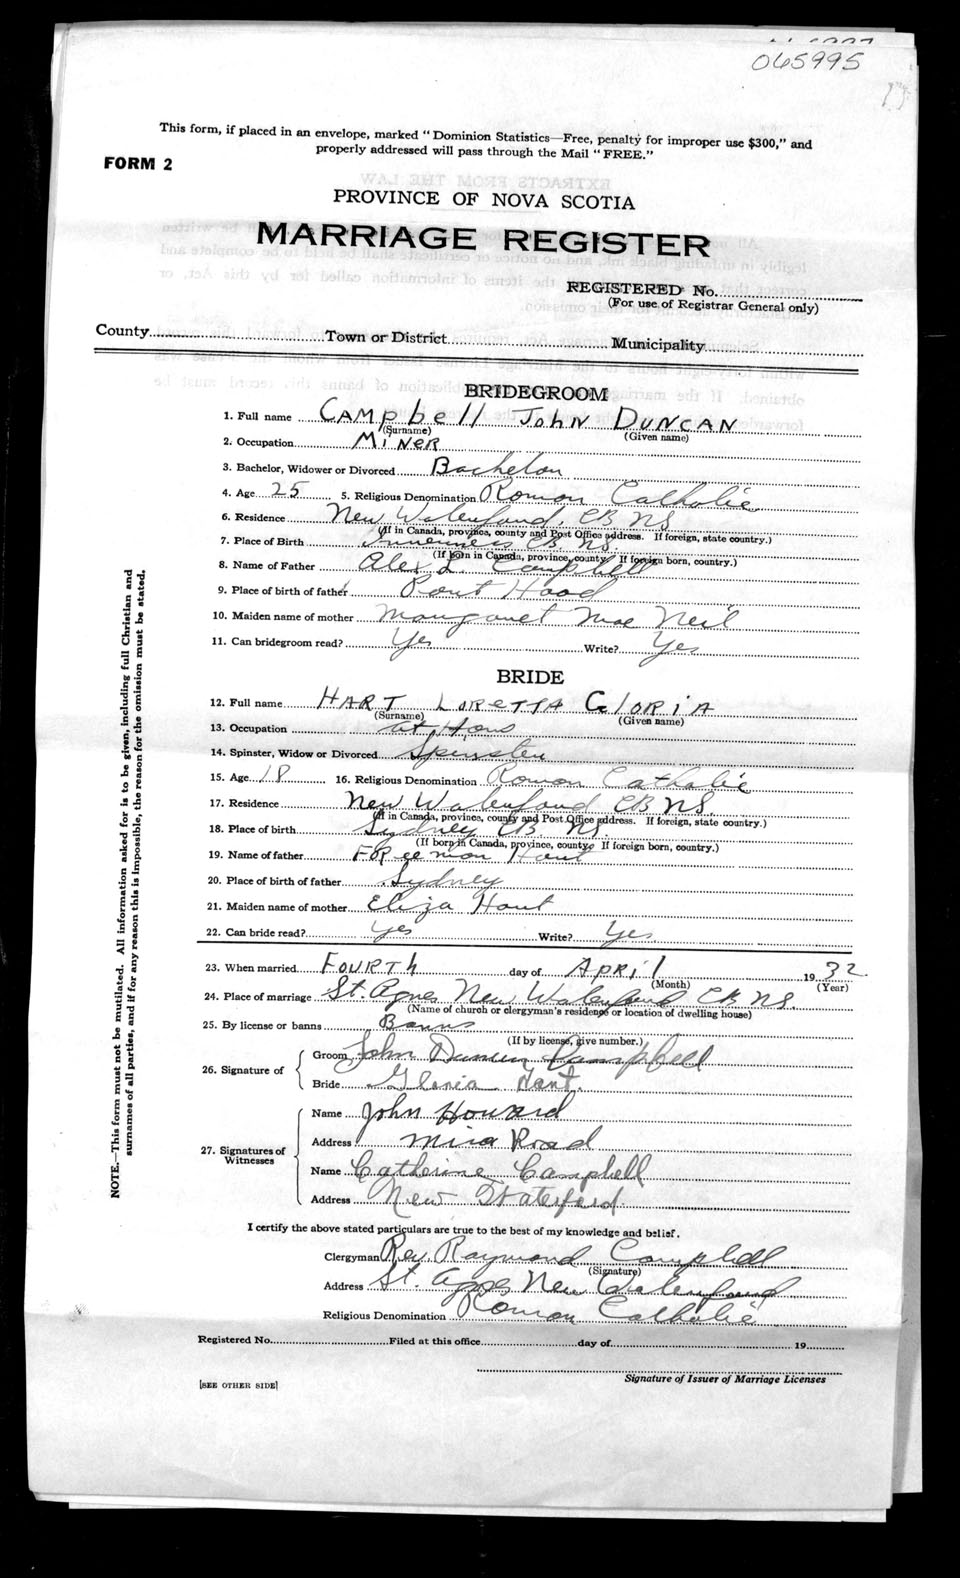 065995
This form, if placed in an envelope, marked "Dominion Statistics—Free, penalty for improper use $300," and
properly addressed will pass through the Mail "FREE."
FORM 2
PROVINCE OF NOVA SCOTIA
MARRIAGE REGISTER
REGISTERED No.
(For use of Registrar General only)
County Town or District Municipality
BRIDEGROOM
1. Full name CAMPbell JOHN DUNCAN
(Surname) (Given name)
2. Occupation MINER
3. Bachelor, Widower or Divorced Bachelor
4. Age 25 5. Religious Denomination Roman Catholic
6. Residence New Waterford, CB NS
(If in Canada, province, county and Post Office address. If foreign, state country.)
7. Place of Birth Inverness CB NS.
(If born in Canada, province, county. If foreign born, country.)
8. Name of Father Alex L Campbell
9. Place of birth of father Port Hood
10. Maiden name of mother Margaret Mac Neil
11. Can bridegroom read? Yes Write? Yes
BRIDE
12. Full name HART LORETTA GlORiA
(Surname) (Given name)
13. Occupation at Home
14. Spinster, Widow or Divorced Spinster
15. Age 18 16. Religious Denomination Roman Catholic
17. Residence New Waterford CB NS.
(If in Canada, province, county and Post Office address. If foreign, state country.)
18. Place of birth Sydney CB NS.
(If born in Canada, province, county. If foreign born, country.)
19. Name of father FOReeman Hart
20. Place of birth of father Sydney
21. Maiden name of mother Eliza Hart
22. Can bride read? Yes Write? Yes
23. When married FOURTh day of APRil 1932
(Month) (Year)
24. Place of marriage St. Agnes New Waterford CB NS.
(Name of church or clergyman's residence or location of dwelling house)
25. By license or banns Banns
(If by license, give number.)
26. Signature of
Groom John Duncan Campbell
Bride Gloria Hart.
27. Signatures of Witnesses
Name John Howard
Address Mira Road
Name Catherine Campbell
Address New Waterford
I certify the above stated particulars are true to the best of my knowledge and belief.
Clergyman Rev. Raymond Campbell
(Signature)
Address St. Agnes New Waterford
Religious Denomination Roman Catholic
Registered No. Filed at this office day of 19
Signature of Issuer of Marriage Licenses
[SEE OTHER SIDE]
NOTE.—This form must not be mutilated. All information asked for is to be given, including full Christian and
surnames of all parties, and if for any reason this is impossible, the reason for the omission must be stated.